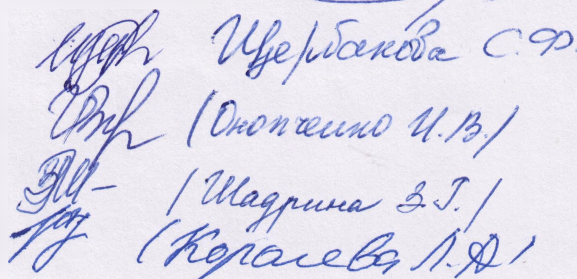 Щербакова С.Ф.
(Онопченко И.В.)
(Шадрина З.Г.)
(Королева Л.А.)